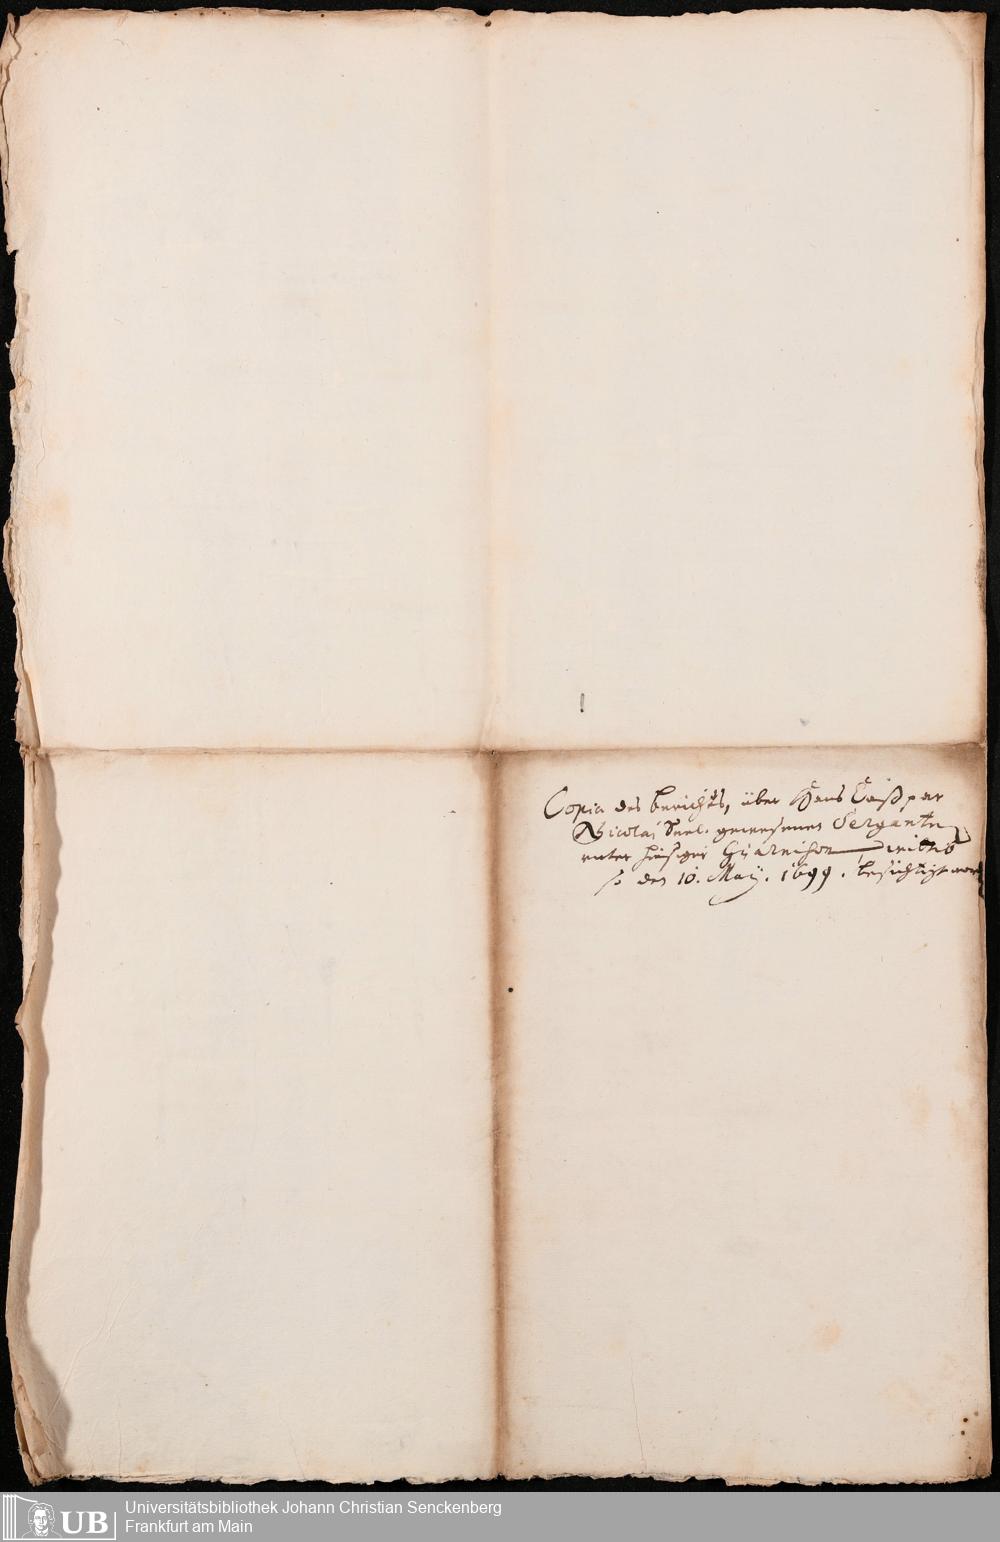 Copia des berichts, über Hans Caßpar
Nicolai Seel. gewesenen Serganten
unter hiesiger Guarnison wittib
so den 10. Maÿ. 1699. besichtiget word
UB
Universitätsbibliothek Johann Christian Senckenberg
Frankfurt am Main